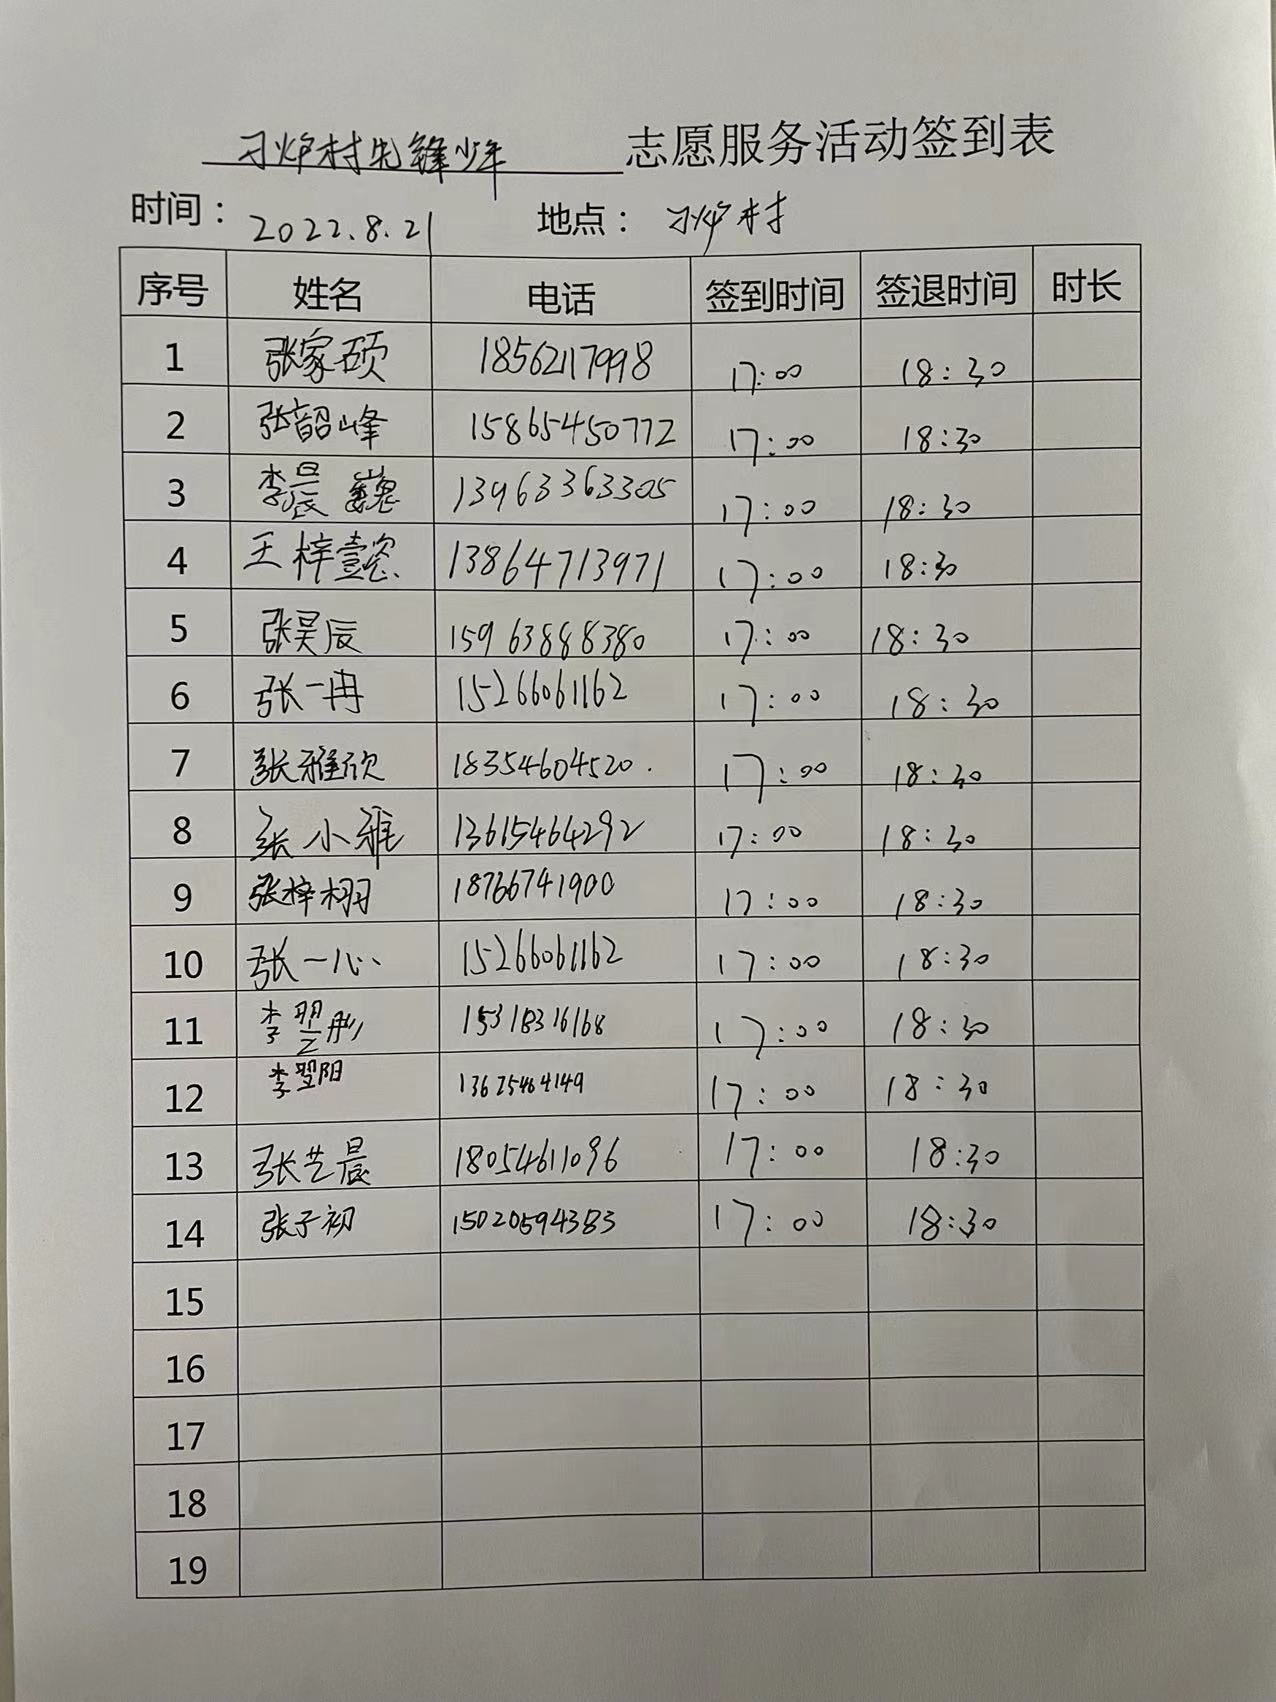 刁炉村先锋少年 志愿服务活动签到表
时间： 2022.8.21 地点： 刁炉村
序号 姓名 电话 签到时间 签退时间 时长
1 张家硕 18562117998 17:00 18:30
2 张韶峰 15865450772 17:00 18:30
3 李晨巍 13963363305 17:00 18:30
4 王梓壹 13864713971 17:00 18:30
5 张昊辰 15963888380 17:00 18:30
6 张一冉 15266061162 17:00 18:30
7 张雅欣 18354604520. 17:00 18:30
8 张小雅 13615464292 17:00 18:30
9 张梓栩 18766741900 17:00 18:30
10 张一心 15266061162 17:00 18:30
11 李翌彤 15318316168 17:00 18:30
12 李翌阳 13625464149 17:00 18:30
13 张艺晨 18054611096 17:00 18:30
14 张子初 15020594383 17:00 18:30
15
16
17
18
19